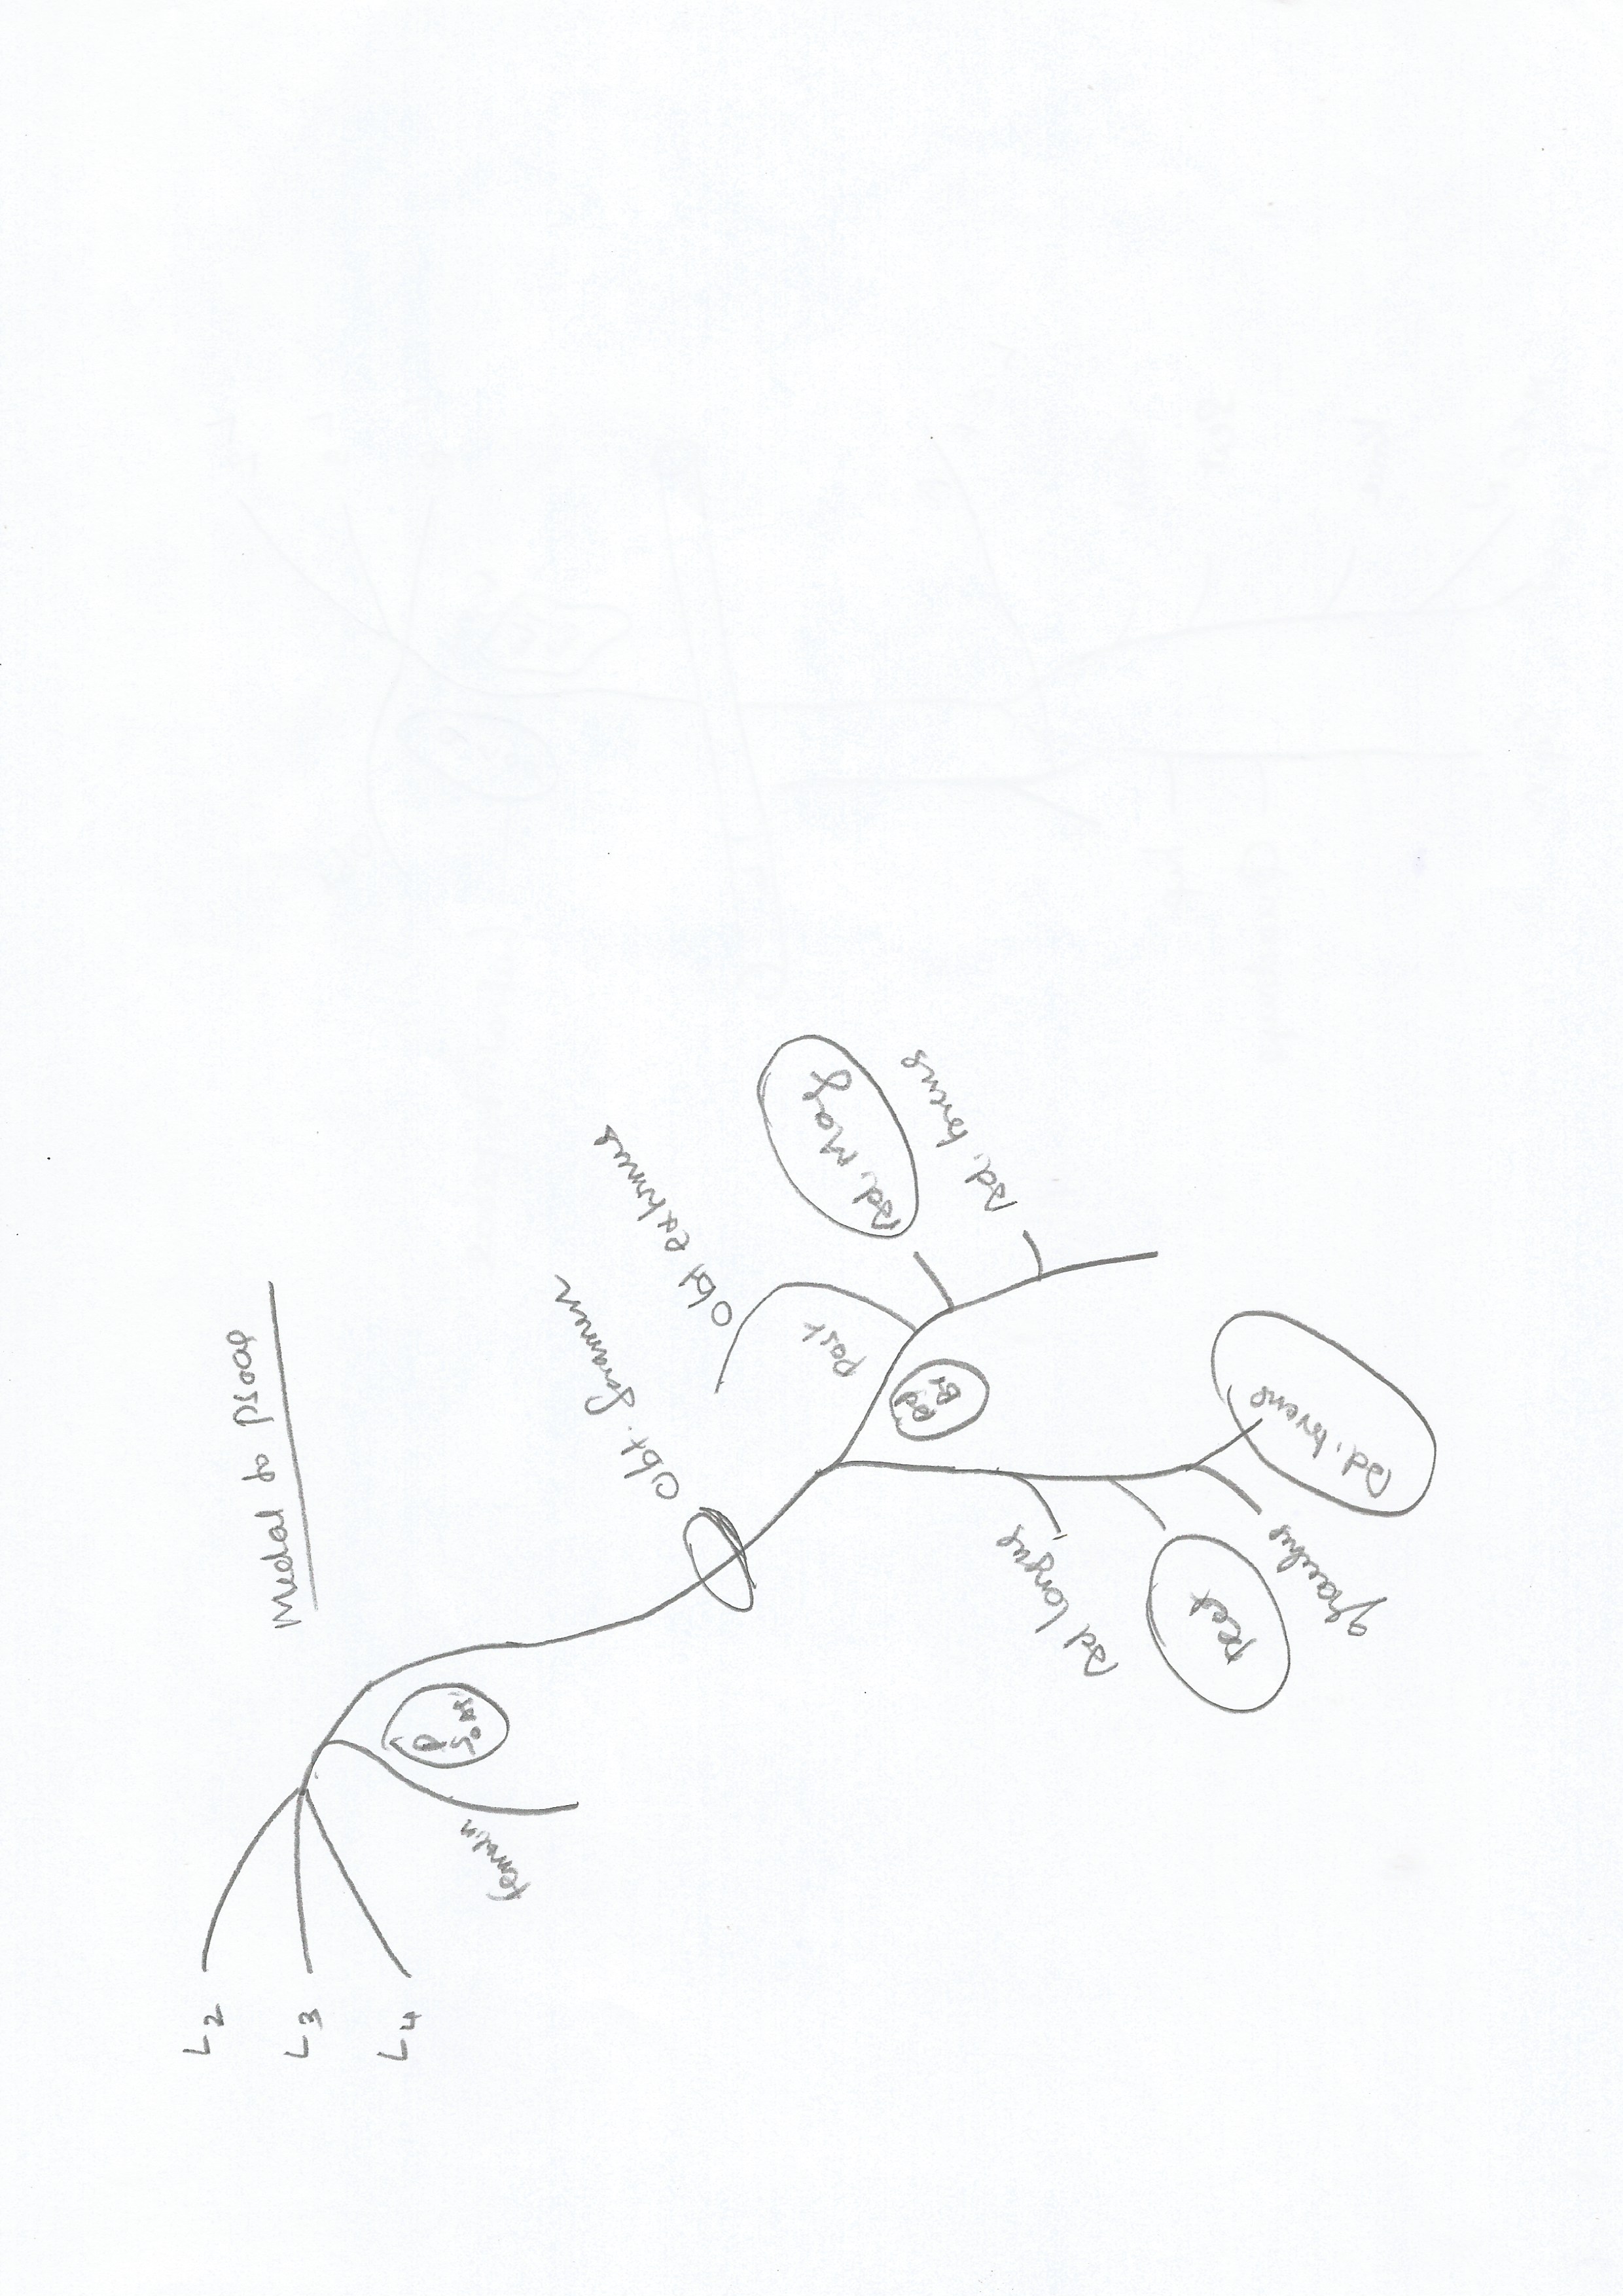 L2
Medal to psoas
L3
L4
P
SOAS
Obt. foramen
Obt externus
Post
Ad. Mag
Ad
Br
Ad. brevis
Ad longus
Pect
gracilis
Ad. brevis